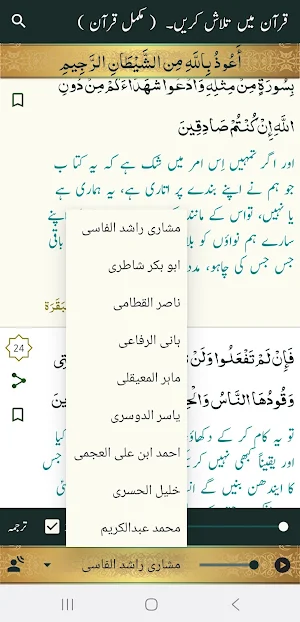 قرآن میں تلاش کریں۔ ( مکمل قرآن )
أَعُوذُ بِاللَّهِ مِنَ الشَّيْطَانِ الرَّجِيمِ
بِسُورَةٍ مِنْ مِثْلِهِ وَادْعُوا شُهَدَاءَكُمْ مِنْ دُونِ
اللَّهِ إِنْ كُنْتُمْ صَادِقِينَ
اور اگر تمہیں اِس امر میں شک ہے کہ یہ کتا ب
جو ہم نے اپنے بندے پر اتاری ہے، یہ ہماری ہے
یا نہیں، تواس کے مانند
سارے ہم نواؤں کو
باقی
جس جس کی چاہو،
مشاری راشد الفاسی
ابو بکر شاطری
ناصر القطامی
بانی الرفاعی
ماہر المعیقلی
یاسر الدوسری
احمد ابن علی العجمی
خلیل الحسری
محمد عبدالکریم
24
فَإِنْ لَمْ تَفْعَلُوا وَلَنْ
وَقُودُهَا النَّاسُ
تو یہ کام کر کے
کیا
اور یقیناً کبھی نہیں
جس
کا ایندھن بنیں گے
ترجمہ
مشاری راشد الفاسی